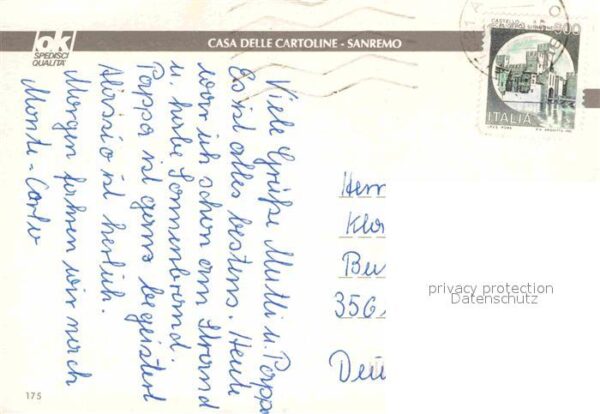 ok
SPEDISCI
QUALITA'
CASA DELLE CARTOLINE - SANREMO
CASTELLO
ITALIA
Viele Grüße Mutti u. Pappa
Es ist alles bestens. Heute
war ich schon am Strand
u. habe Sonnenbrand.
Pappa ist ganz begeistert
Alassio ist herlich.
Morgen fahren wir nach
Monte-Carlo
Herr
Klo
Bu
356
Deu
privacy protection
Datenschutz
175